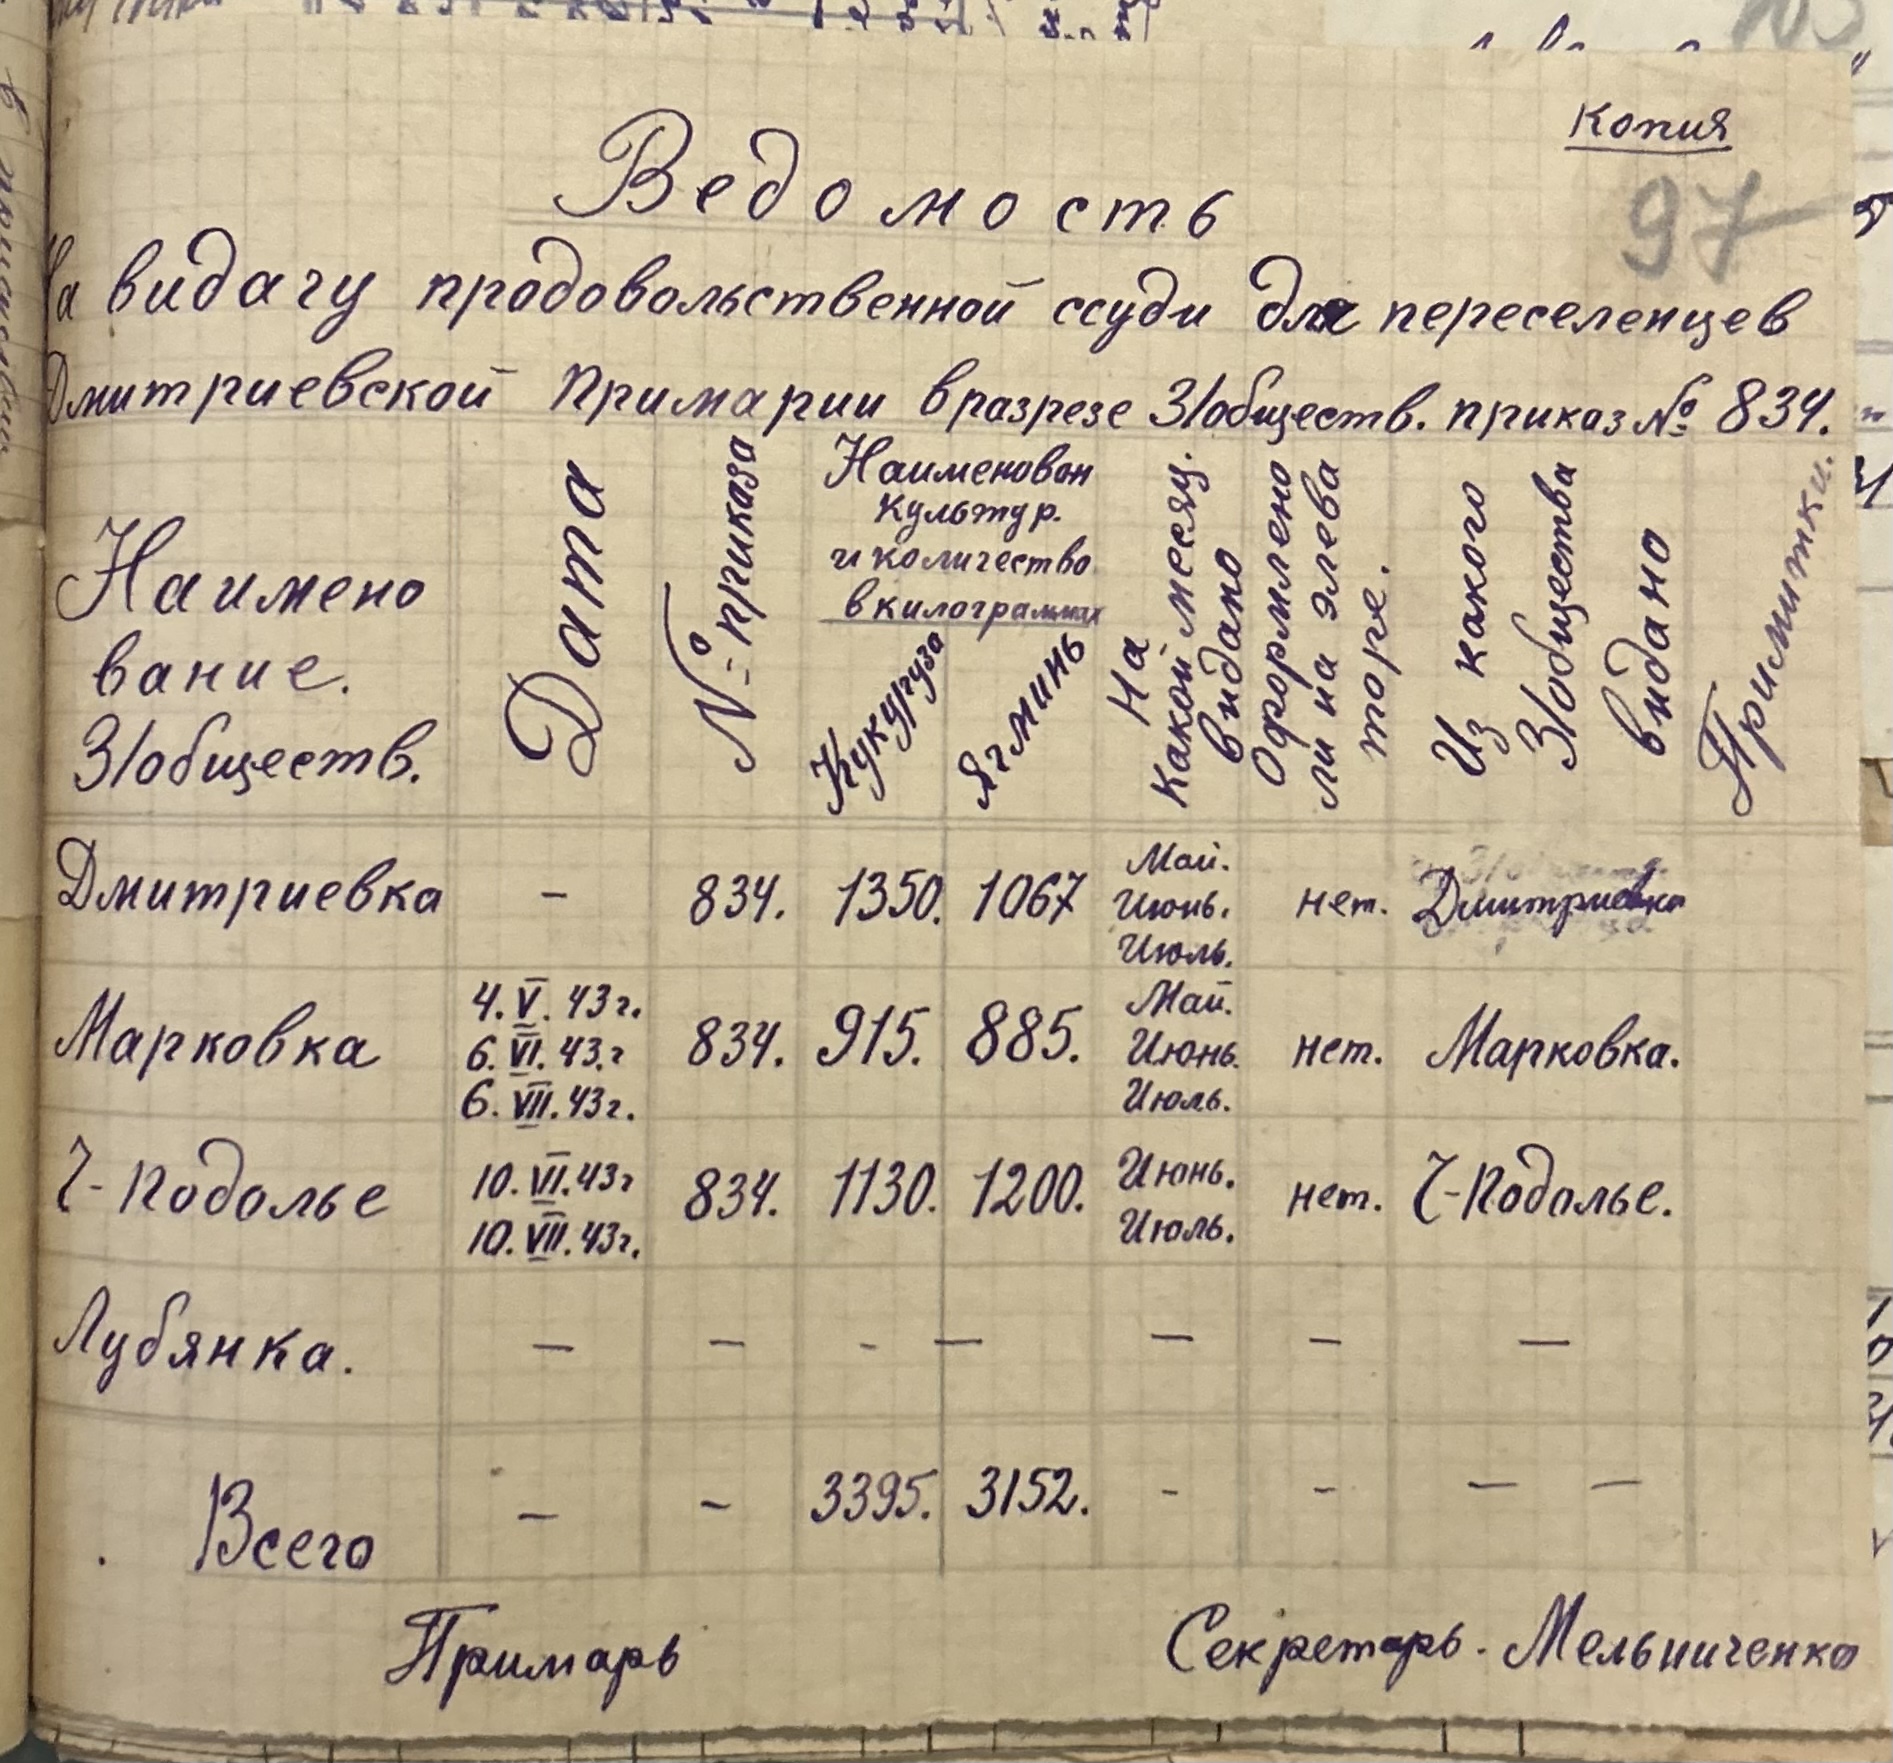 Копия
97
Ведомость
На видачу продовольственной ссуди для переселенцев
Дмитриевской Примарии в разрезе З/обществ. приказ № 834.
Наимено
вание.
З/обществ.
Дата
№ приказа
Наименован
Культур.
и количество
в килограммах
Кукуруза
Ягминь
На
Какой месяц.
видано
Оформлено
ли на элева
торе.
Из какого
З/общества
видано
Примитки.
Дмитриевка - 834. 1350. 1067 Май. Июнь. Июль. нет. Дмитриевка
Марковка 4.V.43г. 6.VI.43.г 6.VII.43г. 834. 915. 885. Май. Июнь. Июль. нет. Марковка.
Ч-Подолье 10.VI.43г 10.VII.43г. 834. 1130. 1200. Июнь. Июль. нет. Ч-Подолье.
Лубянка. - - - - - - -
Всего - - 3395. 3152. - - - -
Примарь
Секретарь. Мельниченко